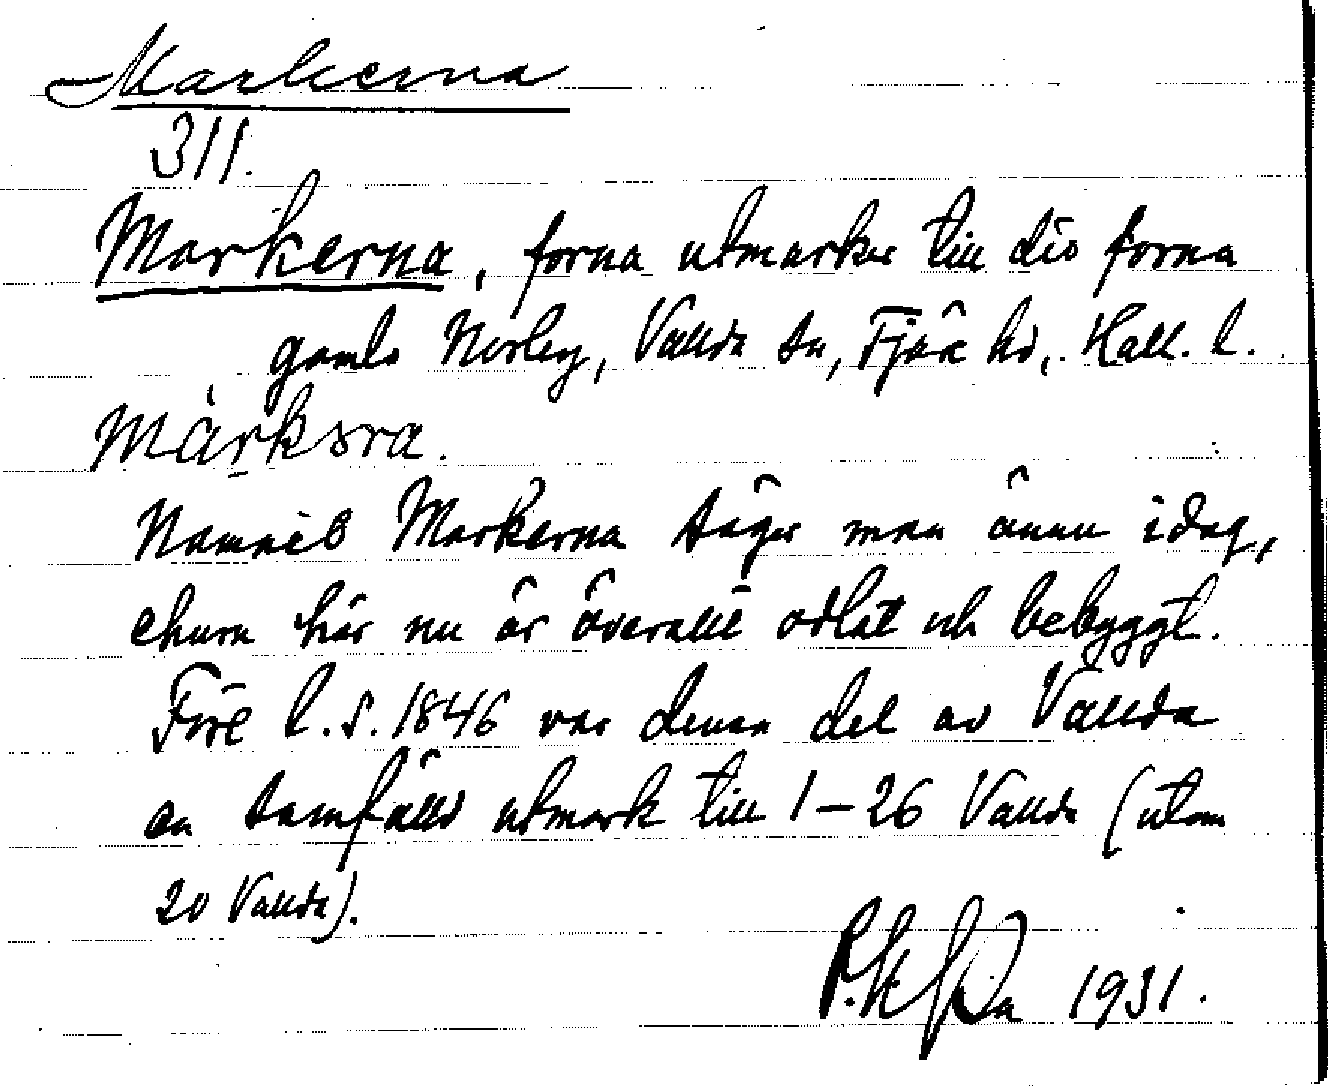 Markerna
311.
Markerna, forna utmarker till dis forna
gamla Norby, Vallda sn, Fjäre hd, Hall. l.
Márksra.
Namnet Markerna säger man ännu idag,
ehuru här nu är överallt odlat och bebyggt.
Före l.s. 1846 var denna del av Vallda
en samfälld utmark till 1-26 Vallda (utom
20 Vallda).
1931.